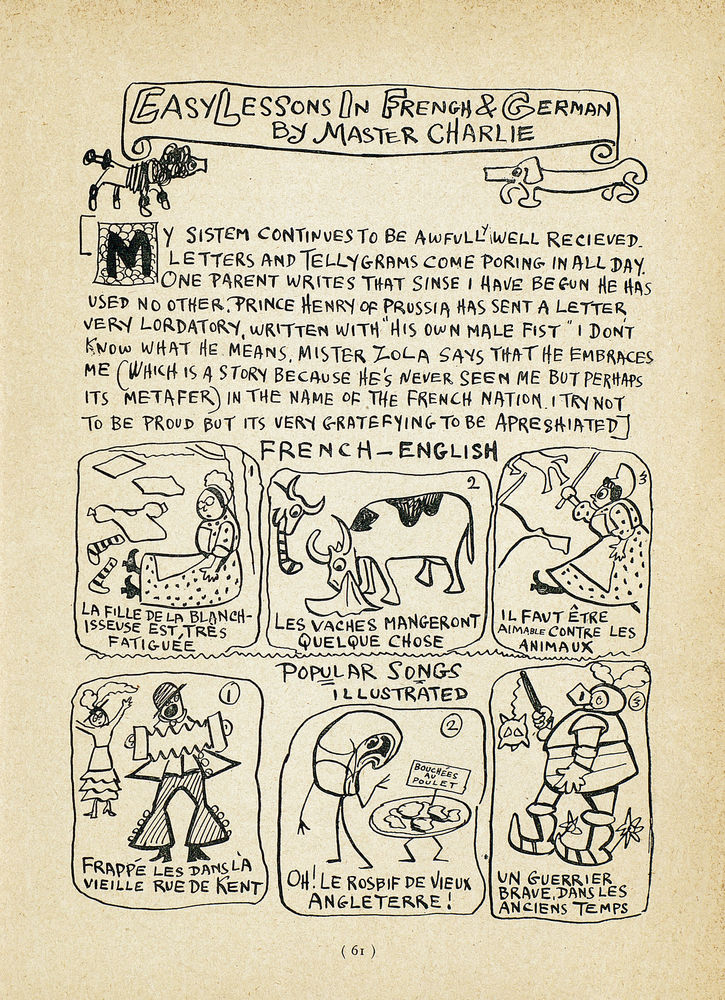 EASY LESSONS IN FRENGH & GERMAN
BY MASTER CHARLIE
[MY SISTEM CONTINUES TO BE AWFULLY WELL RECIEVED.
LETTERS AND TELLYGRAMS COME PORING IN ALL DAY.
ONE PARENT WRITES THAT SINSE I HAVE BEGUN HE HAS
USED NO OTHER. PRINCE HENRY OF PRUSSIA HAS SENT A LETTER
VERY LORDATORY, WRITTEN WITH "HIS OWN MALE FIST" I DON'T
KNOW WHAT HE MEANS, MISTER ZOLA SAYS THAT HE EMBRACES
ME (WHICH IS A STORY BECAUSE HE'S NEVER SEEN ME BUT PERHAPS
ITS METAFER) IN THE NAME OF THE FRENCH NATION. I TRY NOT
TO BE PROUD BUT ITS VERY GRATEFYING TO BE APRESHIATED]
FRENCH – ENGLISH
1
LA FILLE DE LA BLANCH-
ISSEUSE EST TRÈS
FATIGUÉE
2
LES VACHES MANGERONT
QUELQUE CHOSE
3
IL FAUT ÊTRE
AIMABLE CONTRE LES
ANIMAUX
POPULAR SONGS
ILLUSTRATED
1
FRAPPÉ LES DANS LÀ
VIEILLE RUE DE KENT
2
BOUCHÉES
AU
POULET
OH! LE ROSBIF DE VIEUX
ANGLETERRE!
3
UN GUERRIER
BRAVE, DANS LES
ANCIENS TEMPS
( 61 )